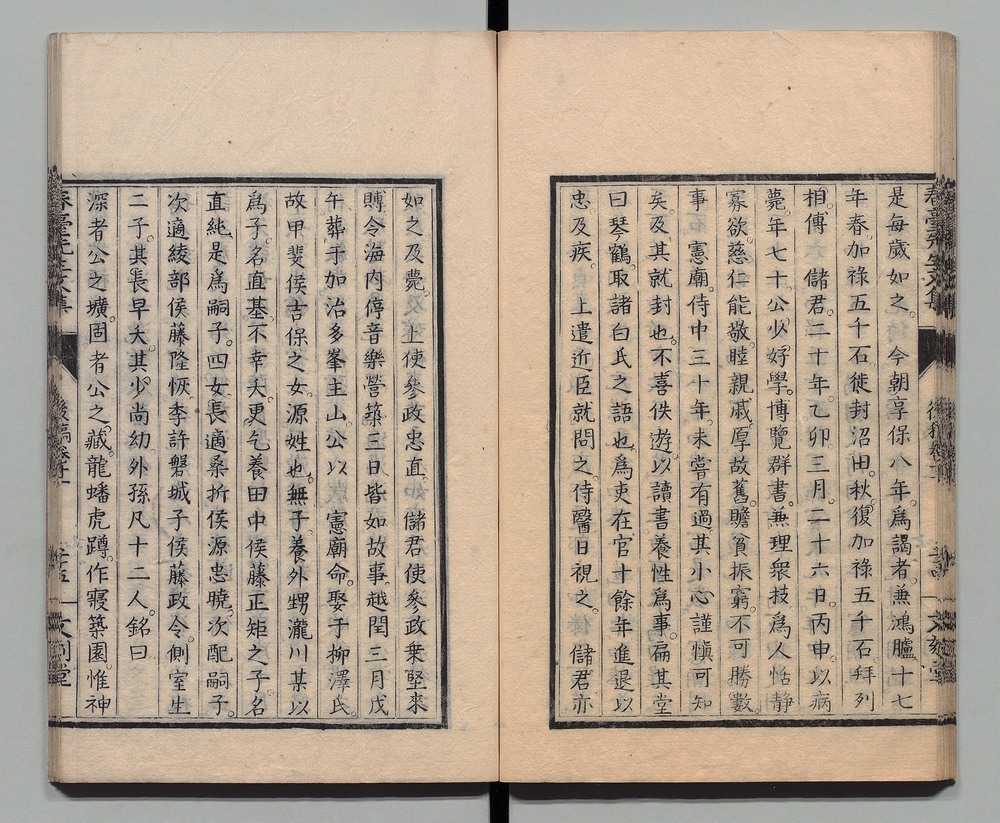 是每歲如之。今朝享保八年。爲謁者。兼鴻臚。十七
年春。加祿五千石。徙封沼田。秋。復加祿五千石。拜列
相。傅 儲君。二十年。乙卯。三月。二十六日。丙申。以病
薨。年七十。公少好學。博覽群書。兼理衆技。爲人恬靜
寡欲。慈仁能敬。睦親戚。厚故舊。贍貧振窮。不可勝數。
事 憲廟。侍中三十年。未嘗有過。其小心謹愼可知
矣。及其就封也。不喜佚遊。以讀書養性爲事。扁其堂
曰琴鶴。取諸白氏之語也。爲吏在官十餘年。進退以
忠。及疾。 上遣近臣就問之。侍醫日視之。 儲君亦
如之。及薨。 上使參政忠直。 儲君使參政乗堅來
賻。令海内停音樂營築三日。皆如故事。越閏三月戊
午。葬于加治多峯主山。公以 憲廟命。娶于柳澤氏。
故甲斐侯吉保之女。源姓也。無子。養外甥瀧川某以
爲子。名直基。不幸夭。更乞養田中侯藤正矩之子。名
直純。是爲嗣子。四女。長適桑折侯源忠曉。次配嗣子。
次適綾部侯藤隆恢。季許磐城子侯藤政令。側室生
二子。其長早夭。其少尚幼。外孫凡十二人。銘曰
深者公之壙。固者公之藏。龍蟠虎蹲。作寢築園。惟神